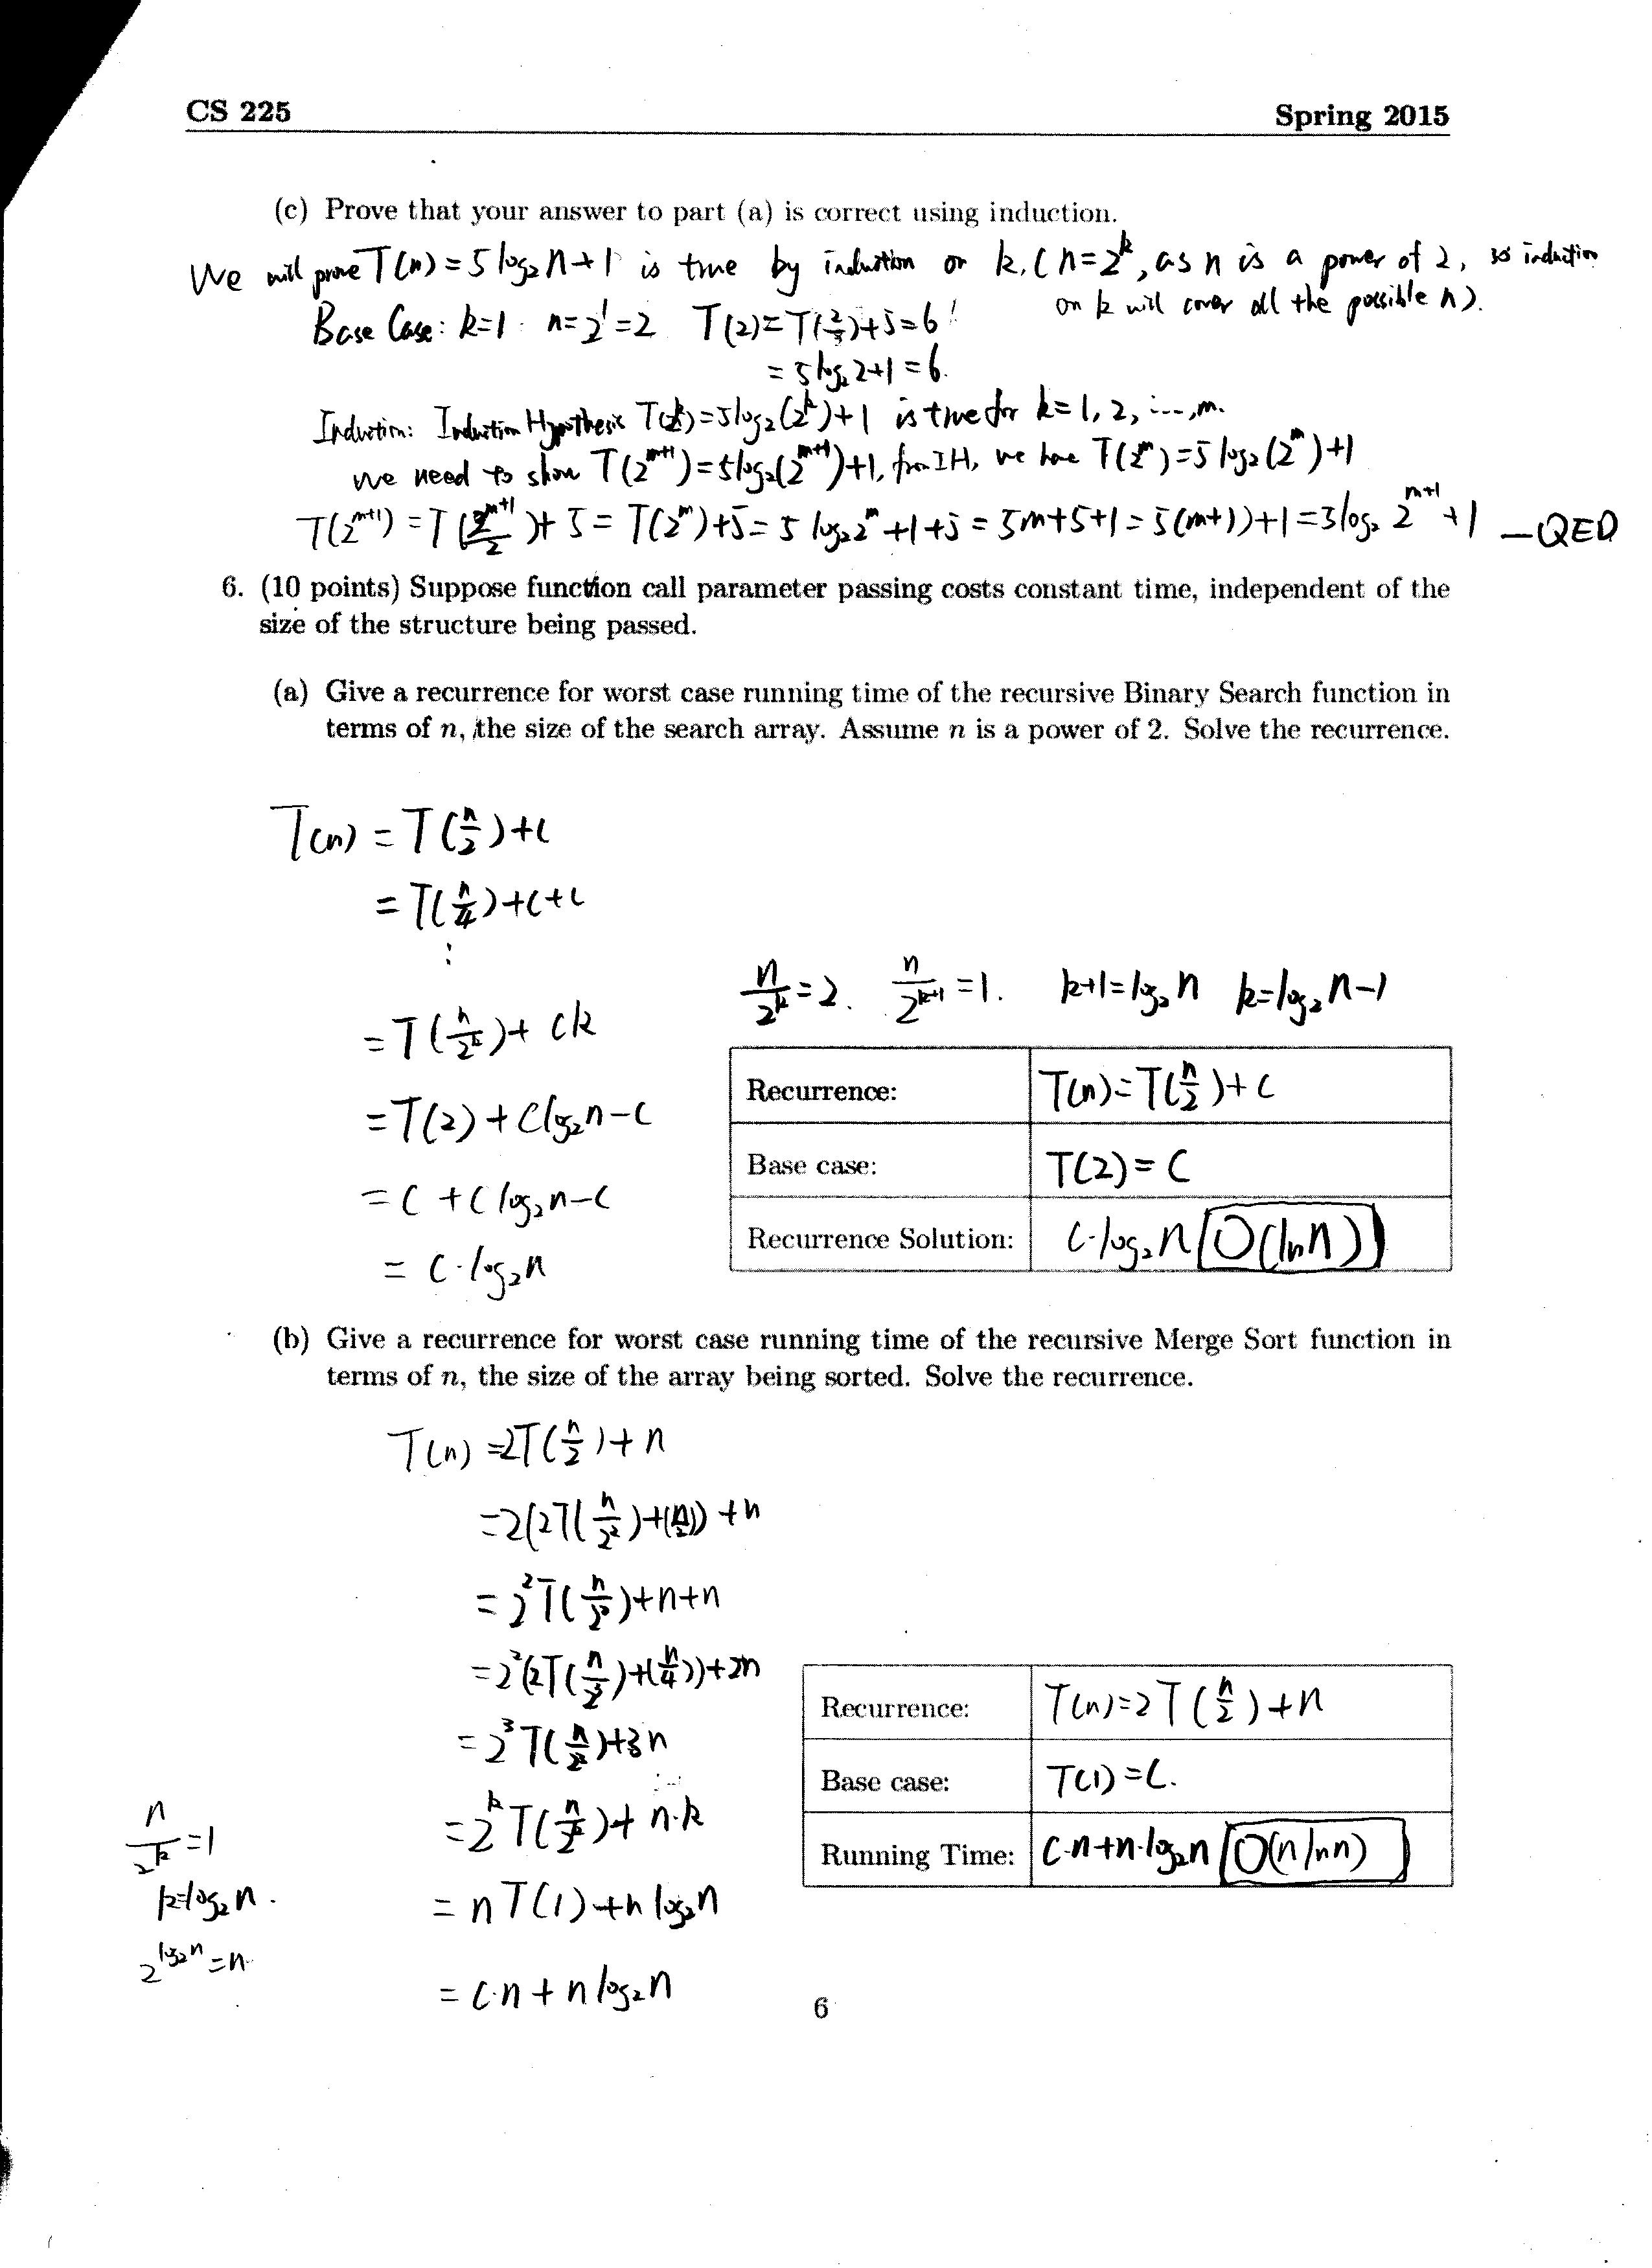 CS 225 Spring 2015
(c) Prove that your answer to part (a) is correct using induction.
We will prove T(n) = 5 log₂ n + 1 is true by induction on k, (n = 2^k, as n is a power of 2, so induction
on k will cover all the possible n).
Base Case: k=1 n=2^1=2 T(2)=T(2/2)+5=6
= 5 log₂ 2+1 = 6.
Induction: Induction Hypothesis T(2^k)=5log₂(2^k)+1 is true for k=1, 2, ..., m.
we need to show T(2^{m+1}) = 5log₂(2^{m+1})+1, from IH, we have T(2^m)=5 log₂(2^m)+1
T(2^{m+1}) = T(2^{m+1}/2)+5 = T(2^m)+5 = 5 log₂2^m+1+5 = 5m+5+1 = 5(m+1)+1 = 5log₂ 2^{m+1}+1 — QED
6. (10 points) Suppose function call parameter passing costs constant time, independent of the
size of the structure being passed.
(a) Give a recurrence for worst case running time of the recursive Binary Search function in
terms of n, the size of the search array. Assume n is a power of 2. Solve the recurrence.
T(n) = T(n/2)+c
= T(n/4)+c+c
⋮
n/2^k = 2. n/2^{k+1} = 1. k+1=log₂ n k=log₂ n-1
= T(n/2^k)+ ck
Recurrence: T(n)=T(n/2)+c
= T(2)+clog₂n-c
Base case: T(2)=c
= c+c log₂n-c
Recurrence Solution: c·log₂n O(ln n)
= c·log₂n
(b) Give a recurrence for worst case running time of the recursive Merge Sort function in
terms of n, the size of the array being sorted. Solve the recurrence.
T(n) =2T(n/2)+n
=2(2T(n/2²)+(n/2))+n
= 2²T(n/2²)+n+n
=2²(2T(n/2³)+(n/4))+2n
Recurrence: T(n)=2T(n/2)+n
= 2³T(n/2³)+3n
Base case: T(1)=c.
...
=2^k T(n/2^k)+ n·k
n/2^k = 1
Running Time: c·n+n·log₂n O(n ln n)
k=log₂ n.
= nT(1)+n log₂n
2^{log₂n} = n.
= c·n+n log₂n
6